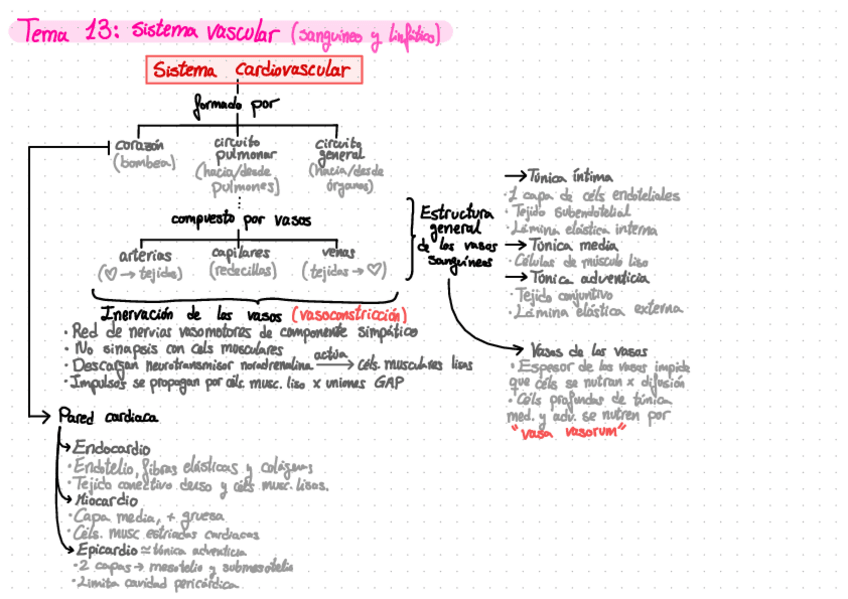 Tema 13: Sistema vascular (sanguíneo y linfático)
Sistema cardiovascular
formado por
corazón
(bombea)
circuito
pulmonar
(hacia/desde
pulmones)
circuito
general
(hacia/desde
órganos)
compuesto por vasos
arterias
(♡ → tejidos)
capilares
(redecillas)
venas
(tejidos → ♡)
Estructura
general
de los vasos
sanguíneos
→ Túnica íntima
· 1 capa de céls endoteliales
· Tejido subendotelial
· Lámina elástica interna
→ Túnica media
· Células de músculo liso
→ Túnica adventicia
· Tejido conjuntivo
· Lámina elástica externa
Inervación de los vasos (vasoconstricción)
· Red de nervios vasomotores de componente simpático
· No sinapsis con cels musculares
· Descargan neurotransmisor noradrenalina actúa → céls. musculares lisas
· Impulsos se propagan por céls. musc. liso x uniones GAP
Vasos de los vasos
· Espesor de los vasos impide
que céls se nutran x difusión
· Céls profundas de túnica
med. y adv. se nutren por
"vasa vasorum"
Pared cardiaca
Endocardio
· Endotelio, fibras elásticas y colágenas
· Tejido conectivo denso y céls musc. lisas.
Miocardio
· Capa media, + gruesa
· Céls. musc estriadas cardiacas
Epicardio ≃ túnica adventicia
· 2 capas → mesotelio y submesotelio
· Limita cavidad pericárdica